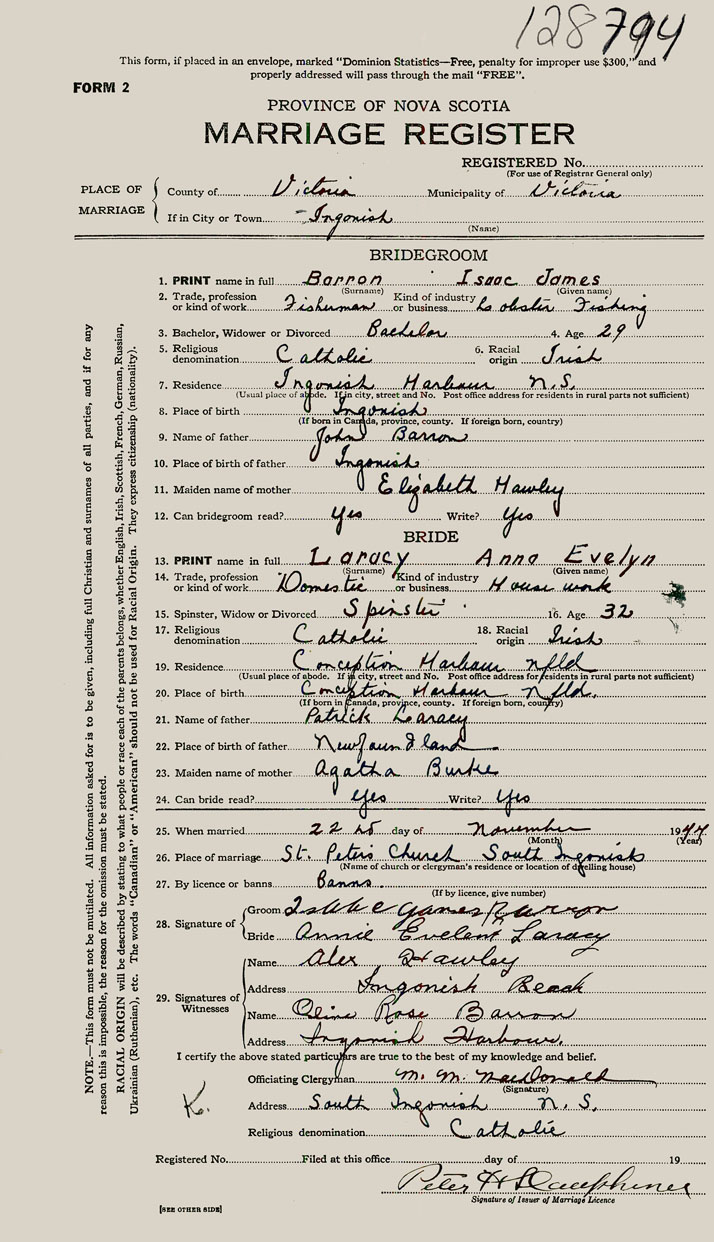 128794
This form, if placed in an envelope, marked "Dominion Statistics—Free, penalty for improper use $300," and
properly addressed will pass through the mail "FREE".
FORM 2
PROVINCE OF NOVA SCOTIA
MARRIAGE REGISTER
REGISTERED No.
(For use of Registrar General only)
PLACE OF MARRIAGE
County of Victoria Municipality of Victoria
If in City or Town Ingonish
(Name)
BRIDEGROOM
1. PRINT name in full Barron Isaac James
(Surname) (Given name)
2. Trade, profession or kind of work Fisherman Kind of industry or business Lobster Fishing
3. Bachelor, Widower or Divorced Bachelor 4. Age 29
5. Religious denomination Catholic 6. Racial origin Irish
7. Residence Ingonish Harbour N.S.
(Usual place of abode. If in city, street and No. Post office address for residents in rural parts not sufficient)
8. Place of birth Ingonish
(If born in Canada, province, county. If foreign born, country)
9. Name of father John Barron
10. Place of birth of father Ingonish
11. Maiden name of mother Elizabeth Hawley
12. Can bridegroom read? Yes Write? Yes
BRIDE
13. PRINT name in full Laracy Anna Evelyn
(Surname) (Given name)
14. Trade, profession or kind of work Domestic Kind of industry or business House work
15. Spinster, Widow or Divorced Spinster 16. Age 32
17. Religious denomination Catholic 18. Racial origin Irish
19. Residence Conception Harbour nfld
(Usual place of abode. If in city, street and No. Post office address for residents in rural parts not sufficient)
20. Place of birth Conception Harbour nfld.
(If born in Canada, province, county. If foreign born, country)
21. Name of father Patrick Laracy
22. Place of birth of father Newfoundland
23. Maiden name of mother Agatha Burke
24. Can bride read? Yes Write? Yes
25. When married 22 day of November 1944
(Month) (Year)
26. Place of marriage St. Peters Church South Ingonish
(Name of church or clergyman's residence or location of dwelling house)
27. By licence or banns Banns.
(If by licence, give number)
28. Signature of
Groom James Barron
Bride Annie Evelent Laracy
29. Signatures of Witnesses
Name Alex Hawley
Address Ingonish Beach
Name Rose Barron
Address Ingonish Harbour.
I certify the above stated particulars are true to the best of my knowledge and belief.
Officiating Clergyman M. M. MacDonald
(Signature)
K.
Address South Ingonish N.S.
Religious denomination Catholic
Registered No. Filed at this office day of 19
Peter H
Signature of Issuer of Marriage Licence
[SEE OTHER SIDE]
NOTE.—This form must not be mutilated. All information asked for is to be given, including full Christian and surnames of all parties, and if for any
reason this is impossible, the reason for the omission must be stated.
RACIAL ORIGIN will be described by stating to what people or race each of the parents belongs, whether English, Irish, Scottish, French, German, Russian,
Ukrainian (Ruthenian), etc. The words "Canadian" or "American" should not be used for Racial Origin. They express citizenship (nationality).